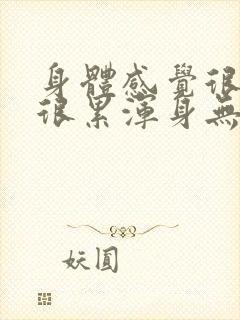 身體感覺很
很累渾身無
妖圓